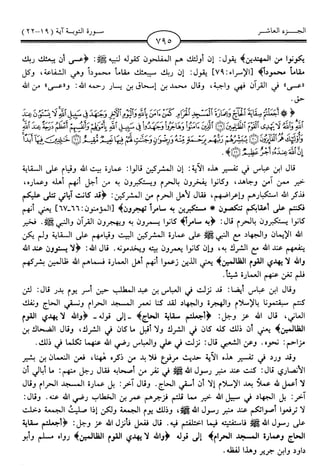 الجـزء العاشـر
٧٩٥
سورة التوبة آية (١٩-٢٢)
يكونوا من المهتدين﴾ يقول: إن أولئك هم المفلحون كقوله لنبيه ﷺ: ﴿عسى أن يبعثك ربك
مقاماً محموداً﴾ [الإسراء: ٧٩] يقول: إن ربك سيبعثك مقاماً محموداً وهي الشفاعة، وكل
«عسى» في القرآن فهي واجبة، وقال محمد بن إسحاق بن يسار رحمه الله: و«عسى» من الله
حق.
﴿۞ أَجَعَلْتُمْ سِقَايَةَ الْحَاجِّ وَعِمَارَةَ الْمَسْجِدِ الْحَرَامِ كَمَنْ ءَامَنَ بِاللَّهِ وَالْيَوْمِ الْآخِرِ وَجَاهَدَ فِي سَبِيلِ اللَّهِ لَا يَسْتَوُونَ عِندَ
اللَّهِ وَاللَّهُ لَا يَهْدِي الْقَوْمَ الظَّالِمِينَ ﴿١٩﴾ الَّذِينَ ءَامَنُوا وَهَاجَرُوا وَجَاهَدُوا فِي سَبِيلِ اللَّهِ بِأَمْوَالِهِمْ وَأَنفُسِهِمْ أَعْظَمُ دَرَجَةً عِندَ اللَّهِ
وَأُولَئِكَ هُمُ الْفَائِزُونَ ﴿٢٠﴾ يُبَشِّرُهُمْ رَبُّهُم بِرَحْمَةٍ مِّنْهُ وَرِضْوَانٍ وَجَنَّاتٍ لَّهُمْ فِيهَا نَعِيمٌ مُّقِيمٌ ﴿٢١﴾ خَالِدِينَ فِيهَا أَبَدًا
إِنَّ اللَّهَ عِندَهُ أَجْرٌ عَظِيمٌ ﴿٢٢﴾﴾.
قال ابن عباس في تفسير هذه الآية: إن المشركين قالوا: عمارة بيت الله وقيام على السقاية
خير ممن آمن وجاهد، وكانوا يفخرون بالحرم ويستكبرون به من أجل أنهم أهله وعماره،
فذكر الله استكبارهم وإعراضهم، فقال لأهل الحرم من المشركين: ﴿قد كانت آياتي تتلى عليكم
فكنتم على أعقابكم تنكصون * مستكبرين به سامراً تهجرون﴾ [المؤمنون: ٦٦-٦٧] يعني أنهم
كانوا يستكبرون بالحرم قال: ﴿به سامراً﴾ كانوا يسمرون به ويهجرون القرآن والنبي ﷺ. فخير
الله الإيمان والجهاد مع النبي ﷺ على عمارة المشركين البيت وقيامهم على السقاية ولم يكن
ينفعهم عند الله مع الشرك به، وإن كانوا يعمرون بيته ويخدمونه. قال الله: ﴿لا يستوون عند الله
والله لا يهدي القوم الظالمين﴾ يعني الذين زعموا أنهم أهل العمارة فسماهم الله ظالمين بشركهم
فلم تغن عنهم العمارة شيئاً.
وقال ابن عباس أيضا: قد نزلت في العباس بن عبد المطلب حين أسر يوم بدر قال: لئن
كنتم سبقتمونا بالإسلام والهجرة والجهاد لقد كنا نعمر المسجد الحرام ونسقي الحاج ونفك
العاني، قال الله عز وجل: ﴿أجعلتم سقاية الحاج﴾ ـ إلى قوله ـ ﴿والله لا يهدي القوم
الظالمين﴾ يعني أن ذلك كله كان في الشرك ولا أقبل ما كان في الشرك، وقال الضحاك بن
مزاحم: نحوه. وعن الشعبي قال: نزلت في علي والعباس رضي الله عنهما تكلما في ذلك.
وقد ورد في تفسير هذه الآية حديث مرفوع فلا بد من ذكره هٰهنا، فعن النعمان بن بشير
الأنصاري قال: كنت عند منبر رسول الله ﷺ في نفر من أصحابه فقال رجل منهم: ما أبالي أن
لا أعمل لله عملاً بعد الإسلام إلا أن أسقي الحاج. وقال آخر: بل عمارة المسجد الحرام وقال
آخر: بل الجهاد في سبيل الله خير مما قلتم فزجرهم عمر بن الخطاب رضي الله عنه. وقال:
لا ترفعوا أصواتكم عند منبر رسول الله ﷺ، وذلك يوم الجمعة ولكن إذا صليتُ الجمعة دخلت
على رسول الله ﷺ فاستفتيته فيما اختلفتم فيه. قال: ففعل فأنزل الله عز وجل: ﴿أجعلتم سقاية
الحاج وعمارة المسجد الحرام﴾ إلى قوله ﴿والله لا يهدي القوم الظالمين﴾ رواه مسلم وأبو
داود وابن جرير وهذا لفظه.